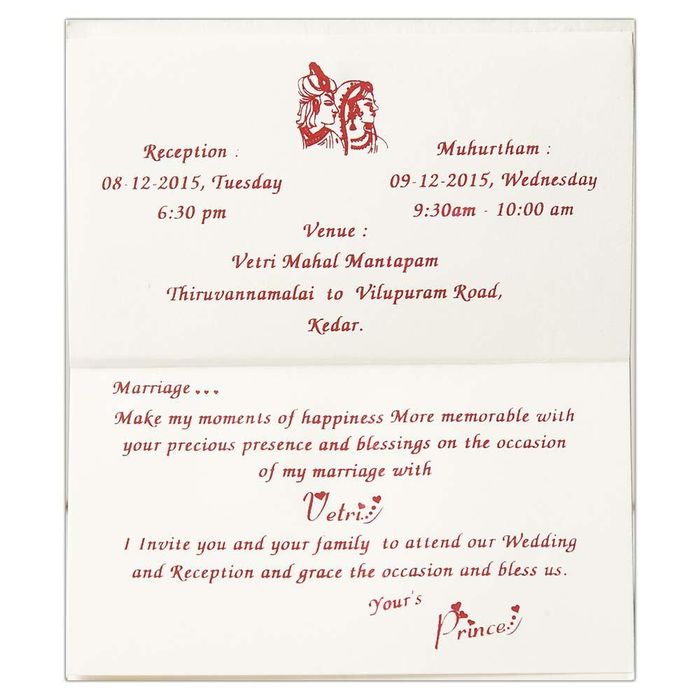 Reception :
08-12-2015, Tuesday
6:30 pm
Muhurtham :
09-12-2015, Wednesday
9:30am - 10:00 am
Venue :
Vetri Mahal Mantapam
Thiruvannamalai to Vilupuram Road,
Kedar.
Marriage...
Make my moments of happiness More memorable with
your precious presence and blessings on the occasion
of my marriage with
Vetri
I Invite you and your family to attend our Wedding
and Reception and grace the occasion and bless us.
Your's
Prince